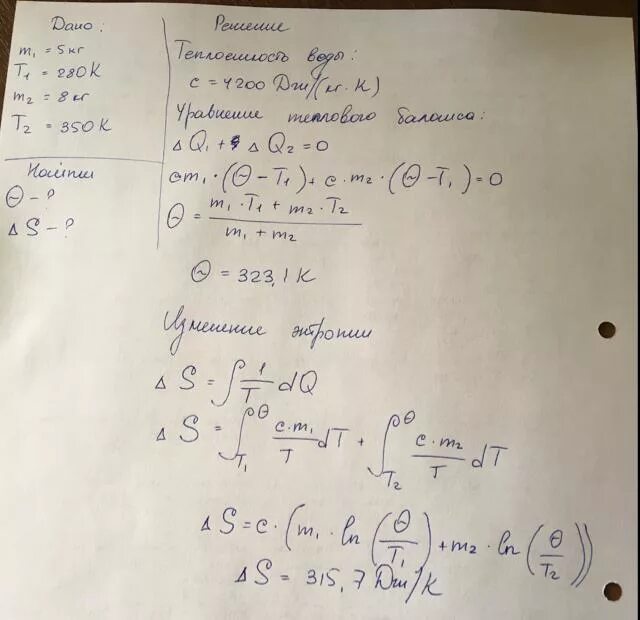 Дано:
m₁ = 5 кг
T₁ = 280 K
m₂ = 8 кг
T₂ = 350 K
Найти
Θ - ?
Δ S - ?
Решение
Теплоемкость воды:
c = 4200 Дж/(кг·К)
Уравнение теплового баланса:
Δ Q₁ + Δ Q₂ = 0
cm₁·(Θ-T₁)+c·m₂·(Θ-T₁)=0
Θ = (m₁·T₁ + m₂·T₂)/(m₁ + m₂)
Θ = 323,1 K
Изменение энтропии
Δ S = ∫ 1/T dQ
Δ S = ∫_{T₁}^{Θ} c·m₁/T dT + ∫_{T₂}^{Θ} c·m₂/T dT
Δ S = c·(m₁·ln(Θ/T₁)+m₂·ln(Θ/T₂))
Δ S = 315,7 Дж/К